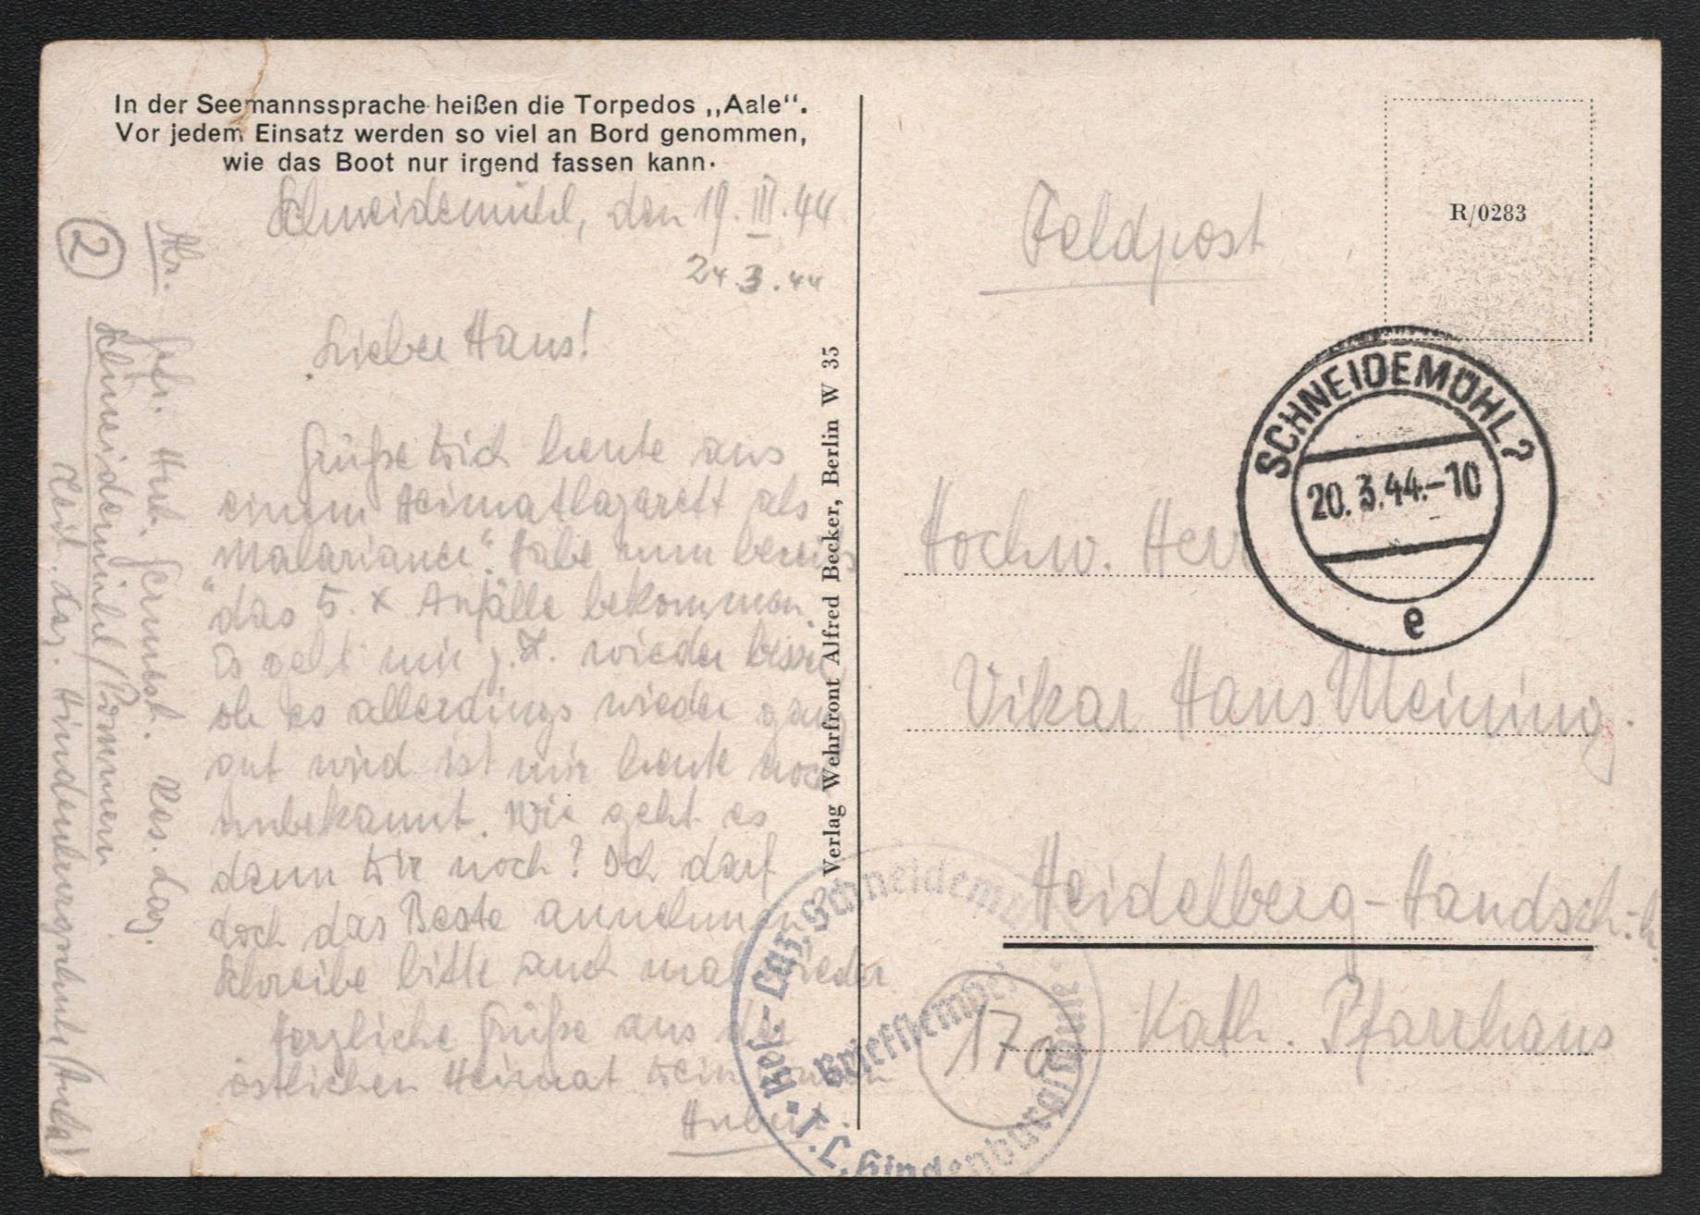 In der Seemannssprache heißen die Torpedos „Aale“.
Vor jedem Einsatz werden so viel an Bord genommen,
wie das Boot nur irgend fassen kann.
Schneidemühl, den 19. III. 44
24.3.44
Lieber Hans!
Grüße Dich heute aus
einem Heimatlazarett als
"Malarianer". Habe nun bereits
das 5. x Anfälle bekommen.
Es geht mir z.Z. wieder besser
ob es allerdings wieder ganz
gut wird ist mir heute noch
unbekannt. Wie geht es
denn Dir noch? Ich darf
doch das Beste annehmen
Schreibe bitte auch mal wieder
Herzliche Grüße aus der
östlichen Heimat Dein
Hubert
②
Abs.
Gefr. Hub. Res. Laz.
Schneidemühl/Pommern
Teil. Laz. Hindenburgschule
Verlag Wehrfront Alfred Becker, Berlin W 35
R/0283
Feldpost
SCHNEIDEMÜHL 2
20. 3.44.-10
e
Hochw. Herr
Vikar Hans Meining.
Heidelberg-Handsch.-h.
Kath. Pfarrhaus
17a
Res.-Laz. Schneidemühl
Briefstempel
T. L. Hindenburgschule